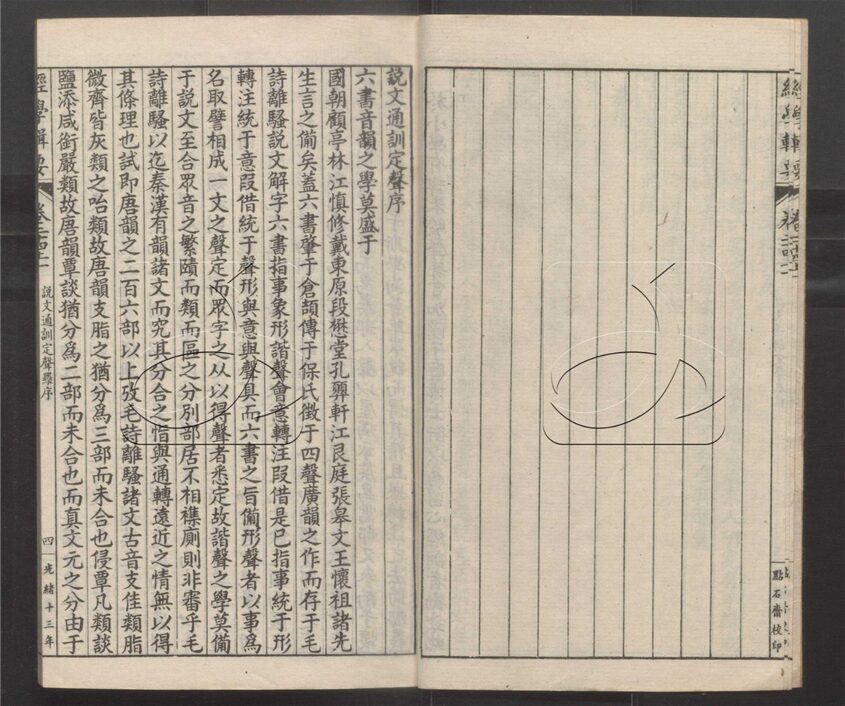 說文通訓定聲序
六書音韻之學莫盛于
國朝顧亭林江慎修戴東原段懋堂孔顨軒江艮庭張皋文王懷祖諸先
生言之備矣蓋六書肇于倉頡傳于保氏徵于四聲廣韻之作而存于毛
詩離騷說文解字六書指事象形諧聲會意轉注叚借是已指事統于形
轉注統于意叚借統于聲形與意與聲具而六書之旨備形聲者以事為
名取譬相成一文之聲定而眾字之从以得聲者悉定故諧聲之學莫備
于說文至合眾音之繁賾而類而區之分別部居不相襍廁則非審乎毛
詩離騷以迄秦漢有韻諸文而究其分合之恉與通轉遠近之情無以得
其條理也試即唐韻之二百六部以上攷毛詩離騷諸文古音支佳類脂
微齊皆灰類之咍類故唐韻支脂之猶分為三部而未合也侵覃凡類談
鹽添咸銜嚴類故唐韻覃談猶分為二部而未合也而真文元之分由于
經學輯要
說文通訓定聲羅序
四
光緒十三年
點石齋校印